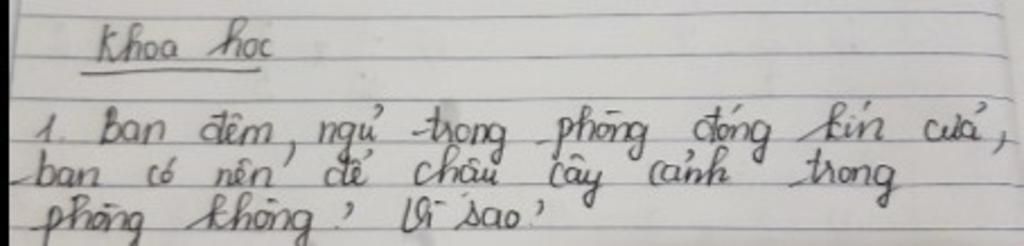 Khoa học
1. Ban đêm, ngủ trong phòng đóng kín cửa,
bạn có nên để chậu cây cảnh trong
phòng không? Vì sao?